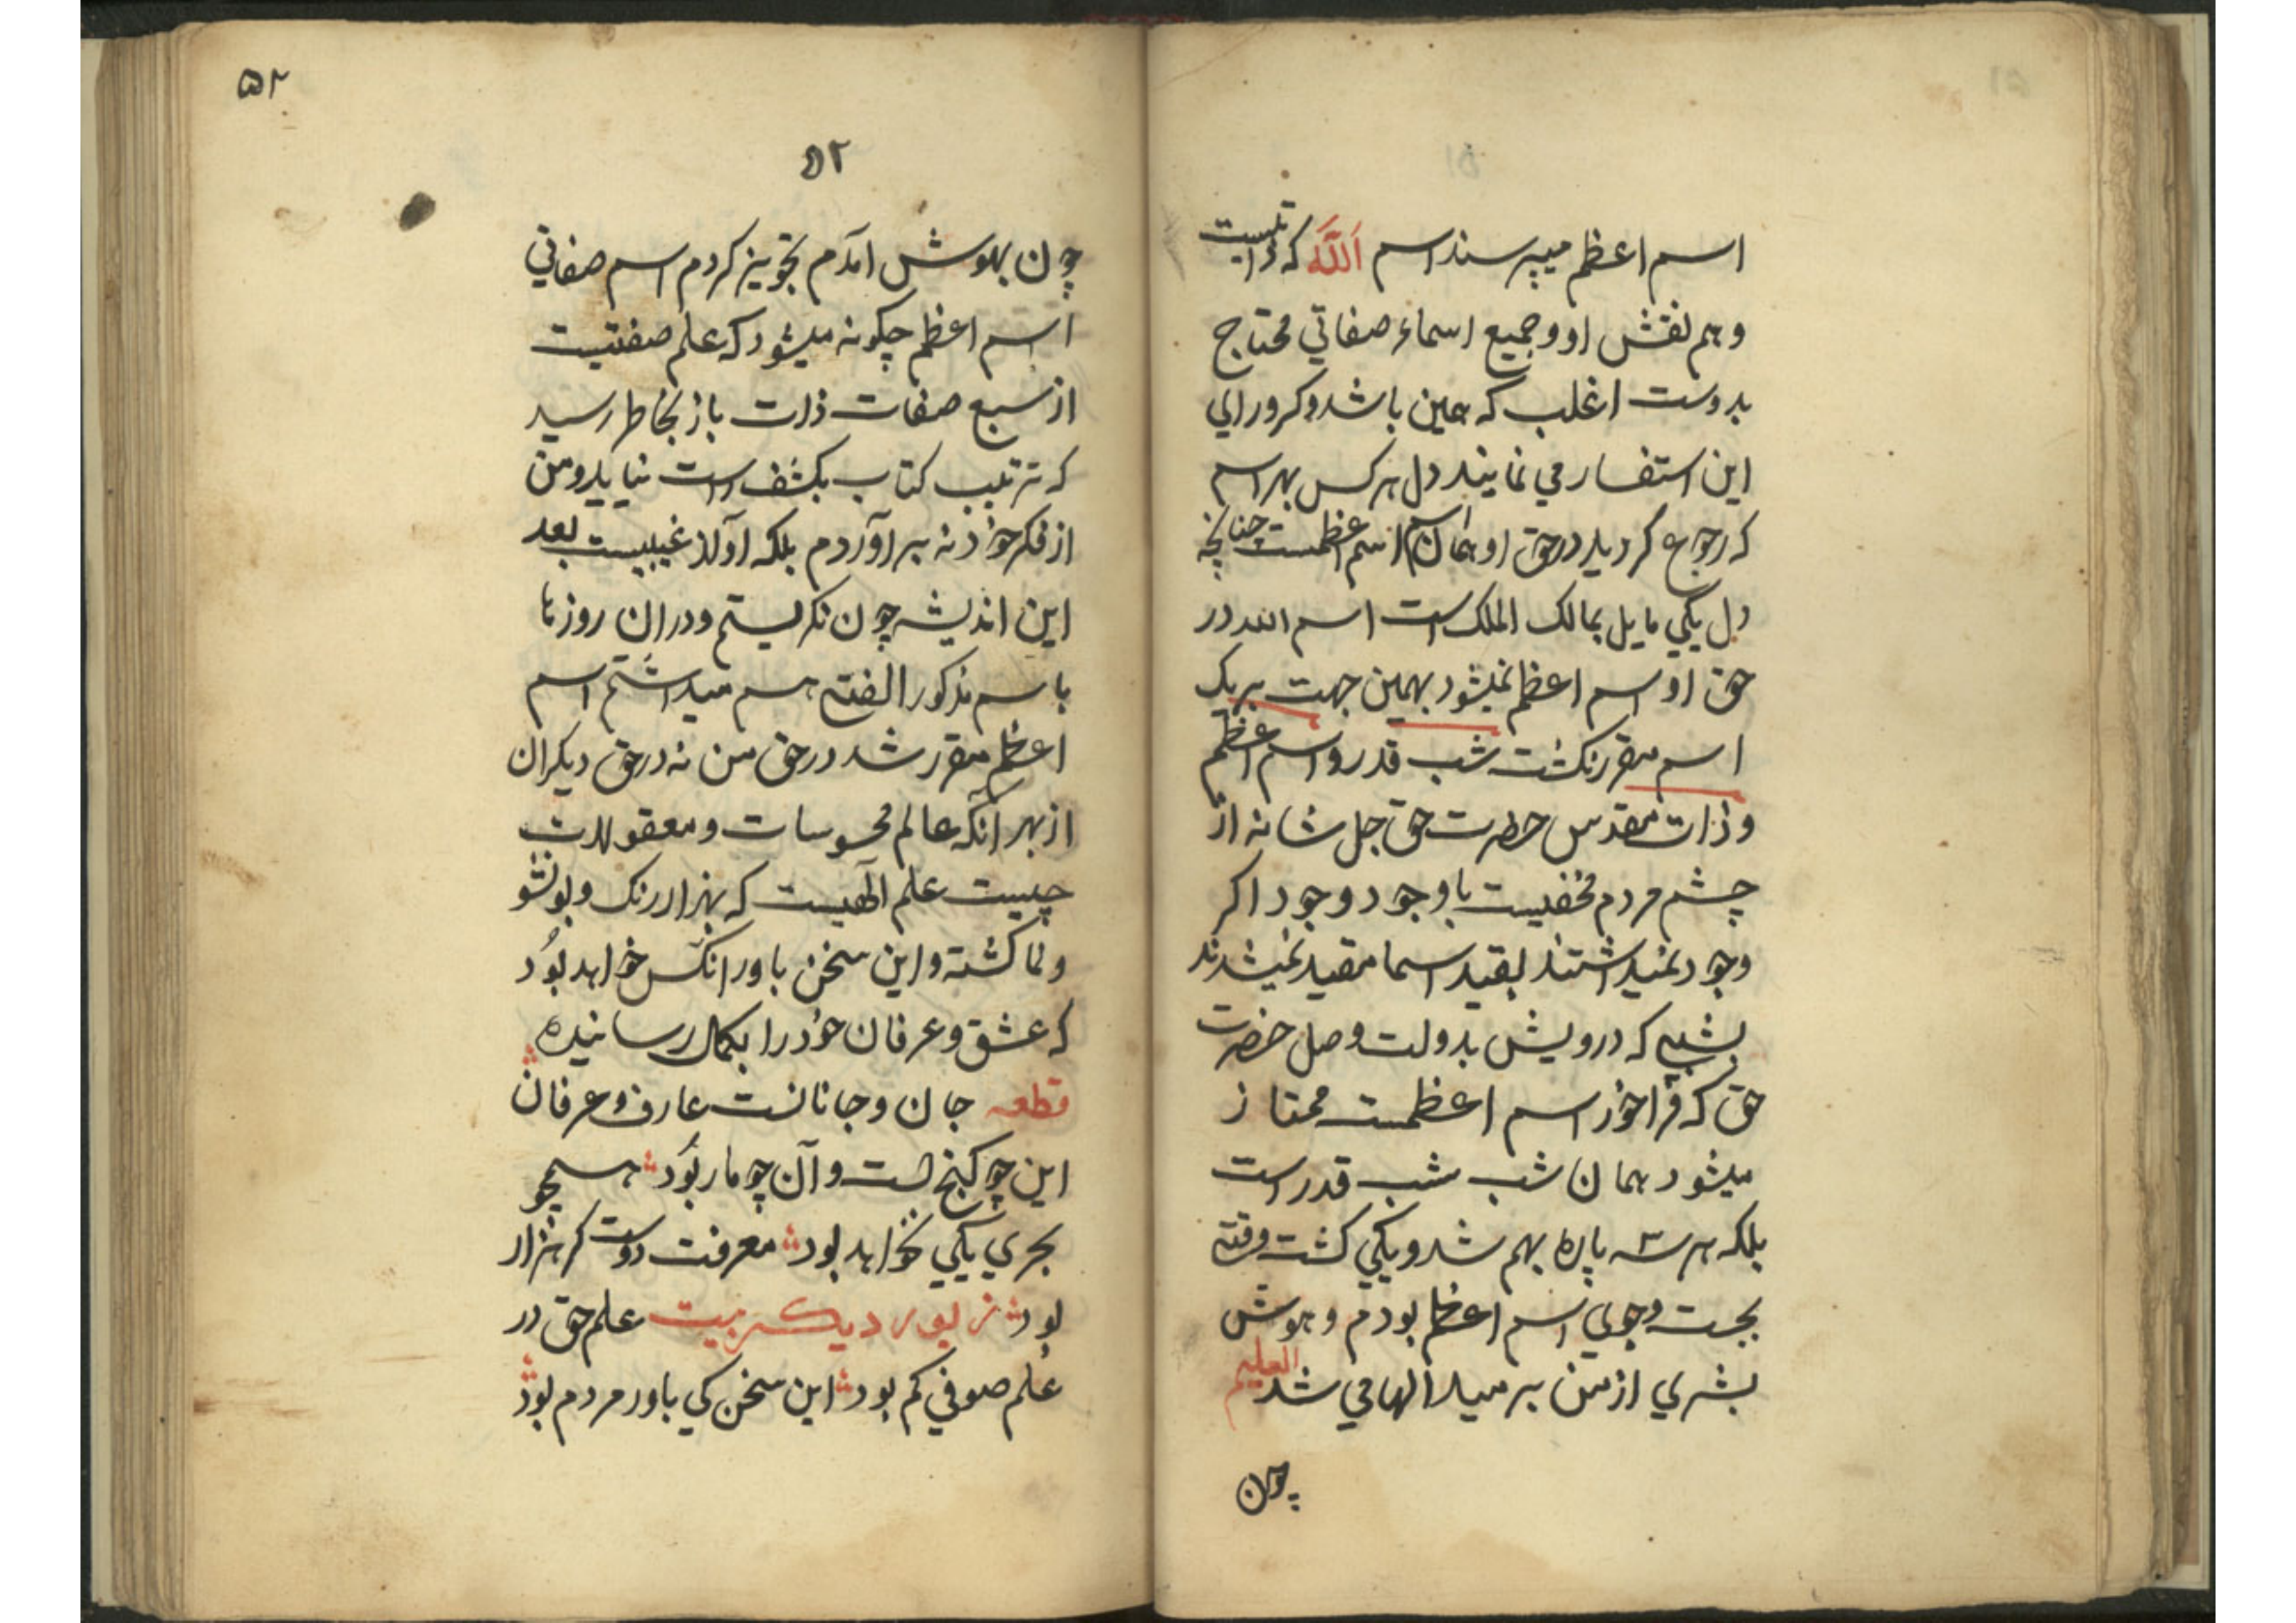 اسم اعظم میپرسند اسم اَللّٰه که ذاتیست
و هم نقش او و جمیع اسماء صفاتي محتاج
بدوست اغلب که همین باشد و کرورایي
این استفسار مي نمایند دل هر کس بهر اسم
که رجوع کردید در حق او همان اسم اعظمست چنانچه
دل یکي مایل بمالک الملک است اسم الله در
حق او اسم اعظم نمیشود بهمین جهت بر یک
اسم مقرر نکشت شب قدر و اسم اعظم
و ذات مقدس حضرت حق جل شانه از
چشم مردم مخفیست با وجود وجود اکر
وجود نمیداشتند بقید اسما مقید نمیشدند
بشبي که درویش بدولت وصل حضرت
حق که فراخور اسم اعظمست ممتاز
میشود همان شب شب قدر است
بلکه هر سه پاره بهم شد و یکي کشت وقتي
بجست وجوي اسم اعظم بودم و هوش
بشري از من برمید الهامي شد العلیم
چون
۵۲
۵۲
چون بهوش آمدم تجویز کردم اسم صفاتي
اسم اعظم چکونه میشود که علم صفتیست
از سبع صفات ذات باز بخاطر رسید
که ترتیب کتاب بکشف است نیاید و من
از فکر خود نه برآوردم بلکه آواز غیبیست بعد
این اندیشه چون نکریستم و در ان روزها
با اسم مذکور الفتي هم میداشتم اسم
اعظم مقرر شد در حق من نه در حق دیکران
از بهر آنکه عالم محسوسات و معقولات
چیست علم الٓهیست که بهزار رنک و بو نشو
و نما کشته و این سخن باور انکس خواهد بود
که عشق و عرفان خود را بکمال رسانیده
قطعه جان و جانانست عارف و عرفان
این چو کنج است و آن چو مار بود همچو
بحري یکي نخواهد بود معرفت دوست کر هزار
بود از یور دیکر بیت علم حق در
علم صوفي کم بود این سخن کي باور مردم بود